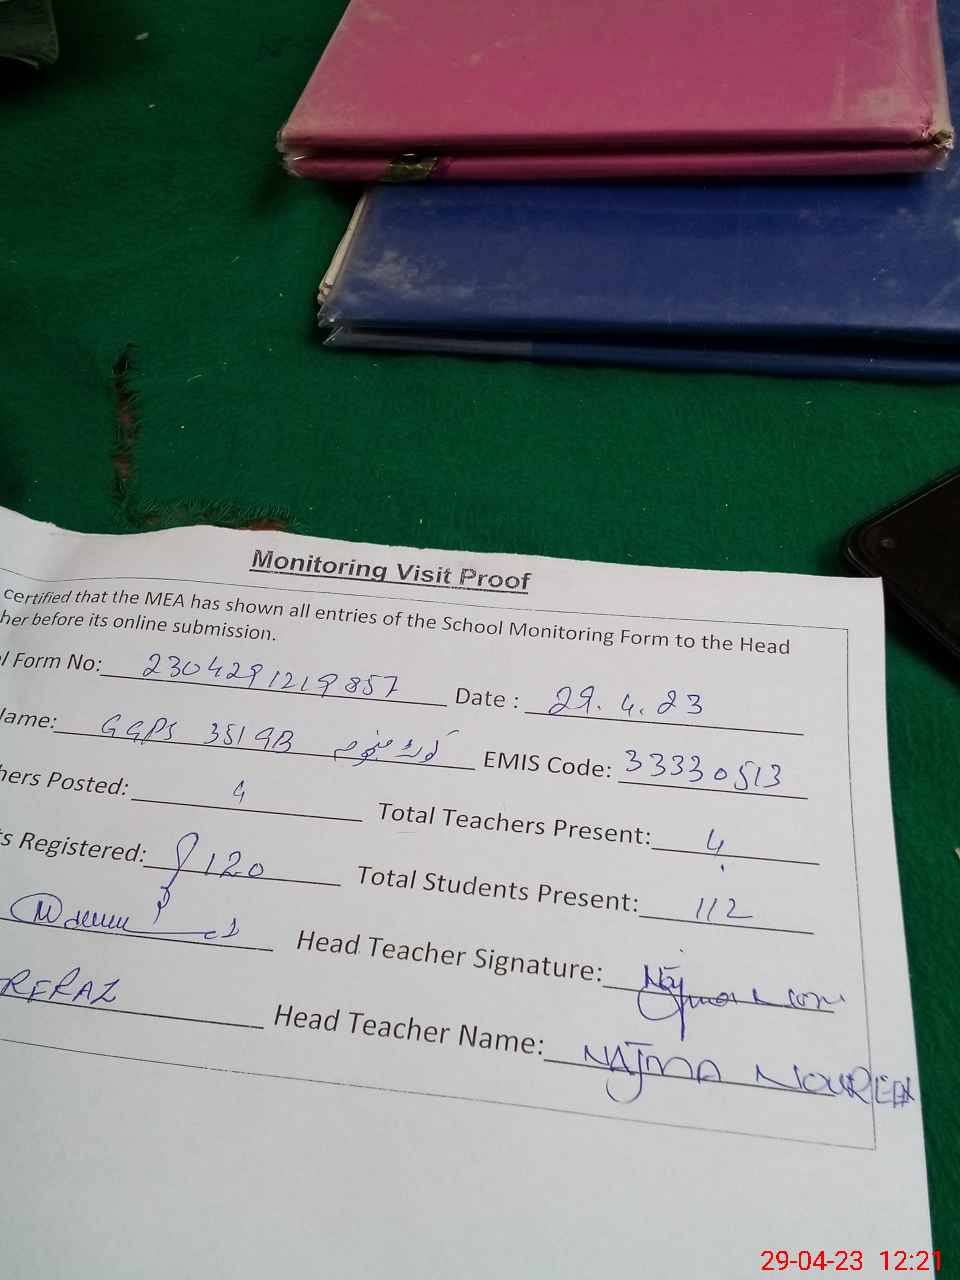 Monitoring Visit Proof
certified that the MEA has shown all entries of the School Monitoring Form to the Head
her before its online submission.
l Form No: 2304291219857 Date : 29.4.23
Name: GGPS 351 GB EMIS Code: 33330513
hers Posted: 4 Total Teachers Present: 4
s Registered: 120 Total Students Present: 112
Head Teacher Signature:
RFRAZ Head Teacher Name: NAJMA NOUREEN
29-04-23 12:21